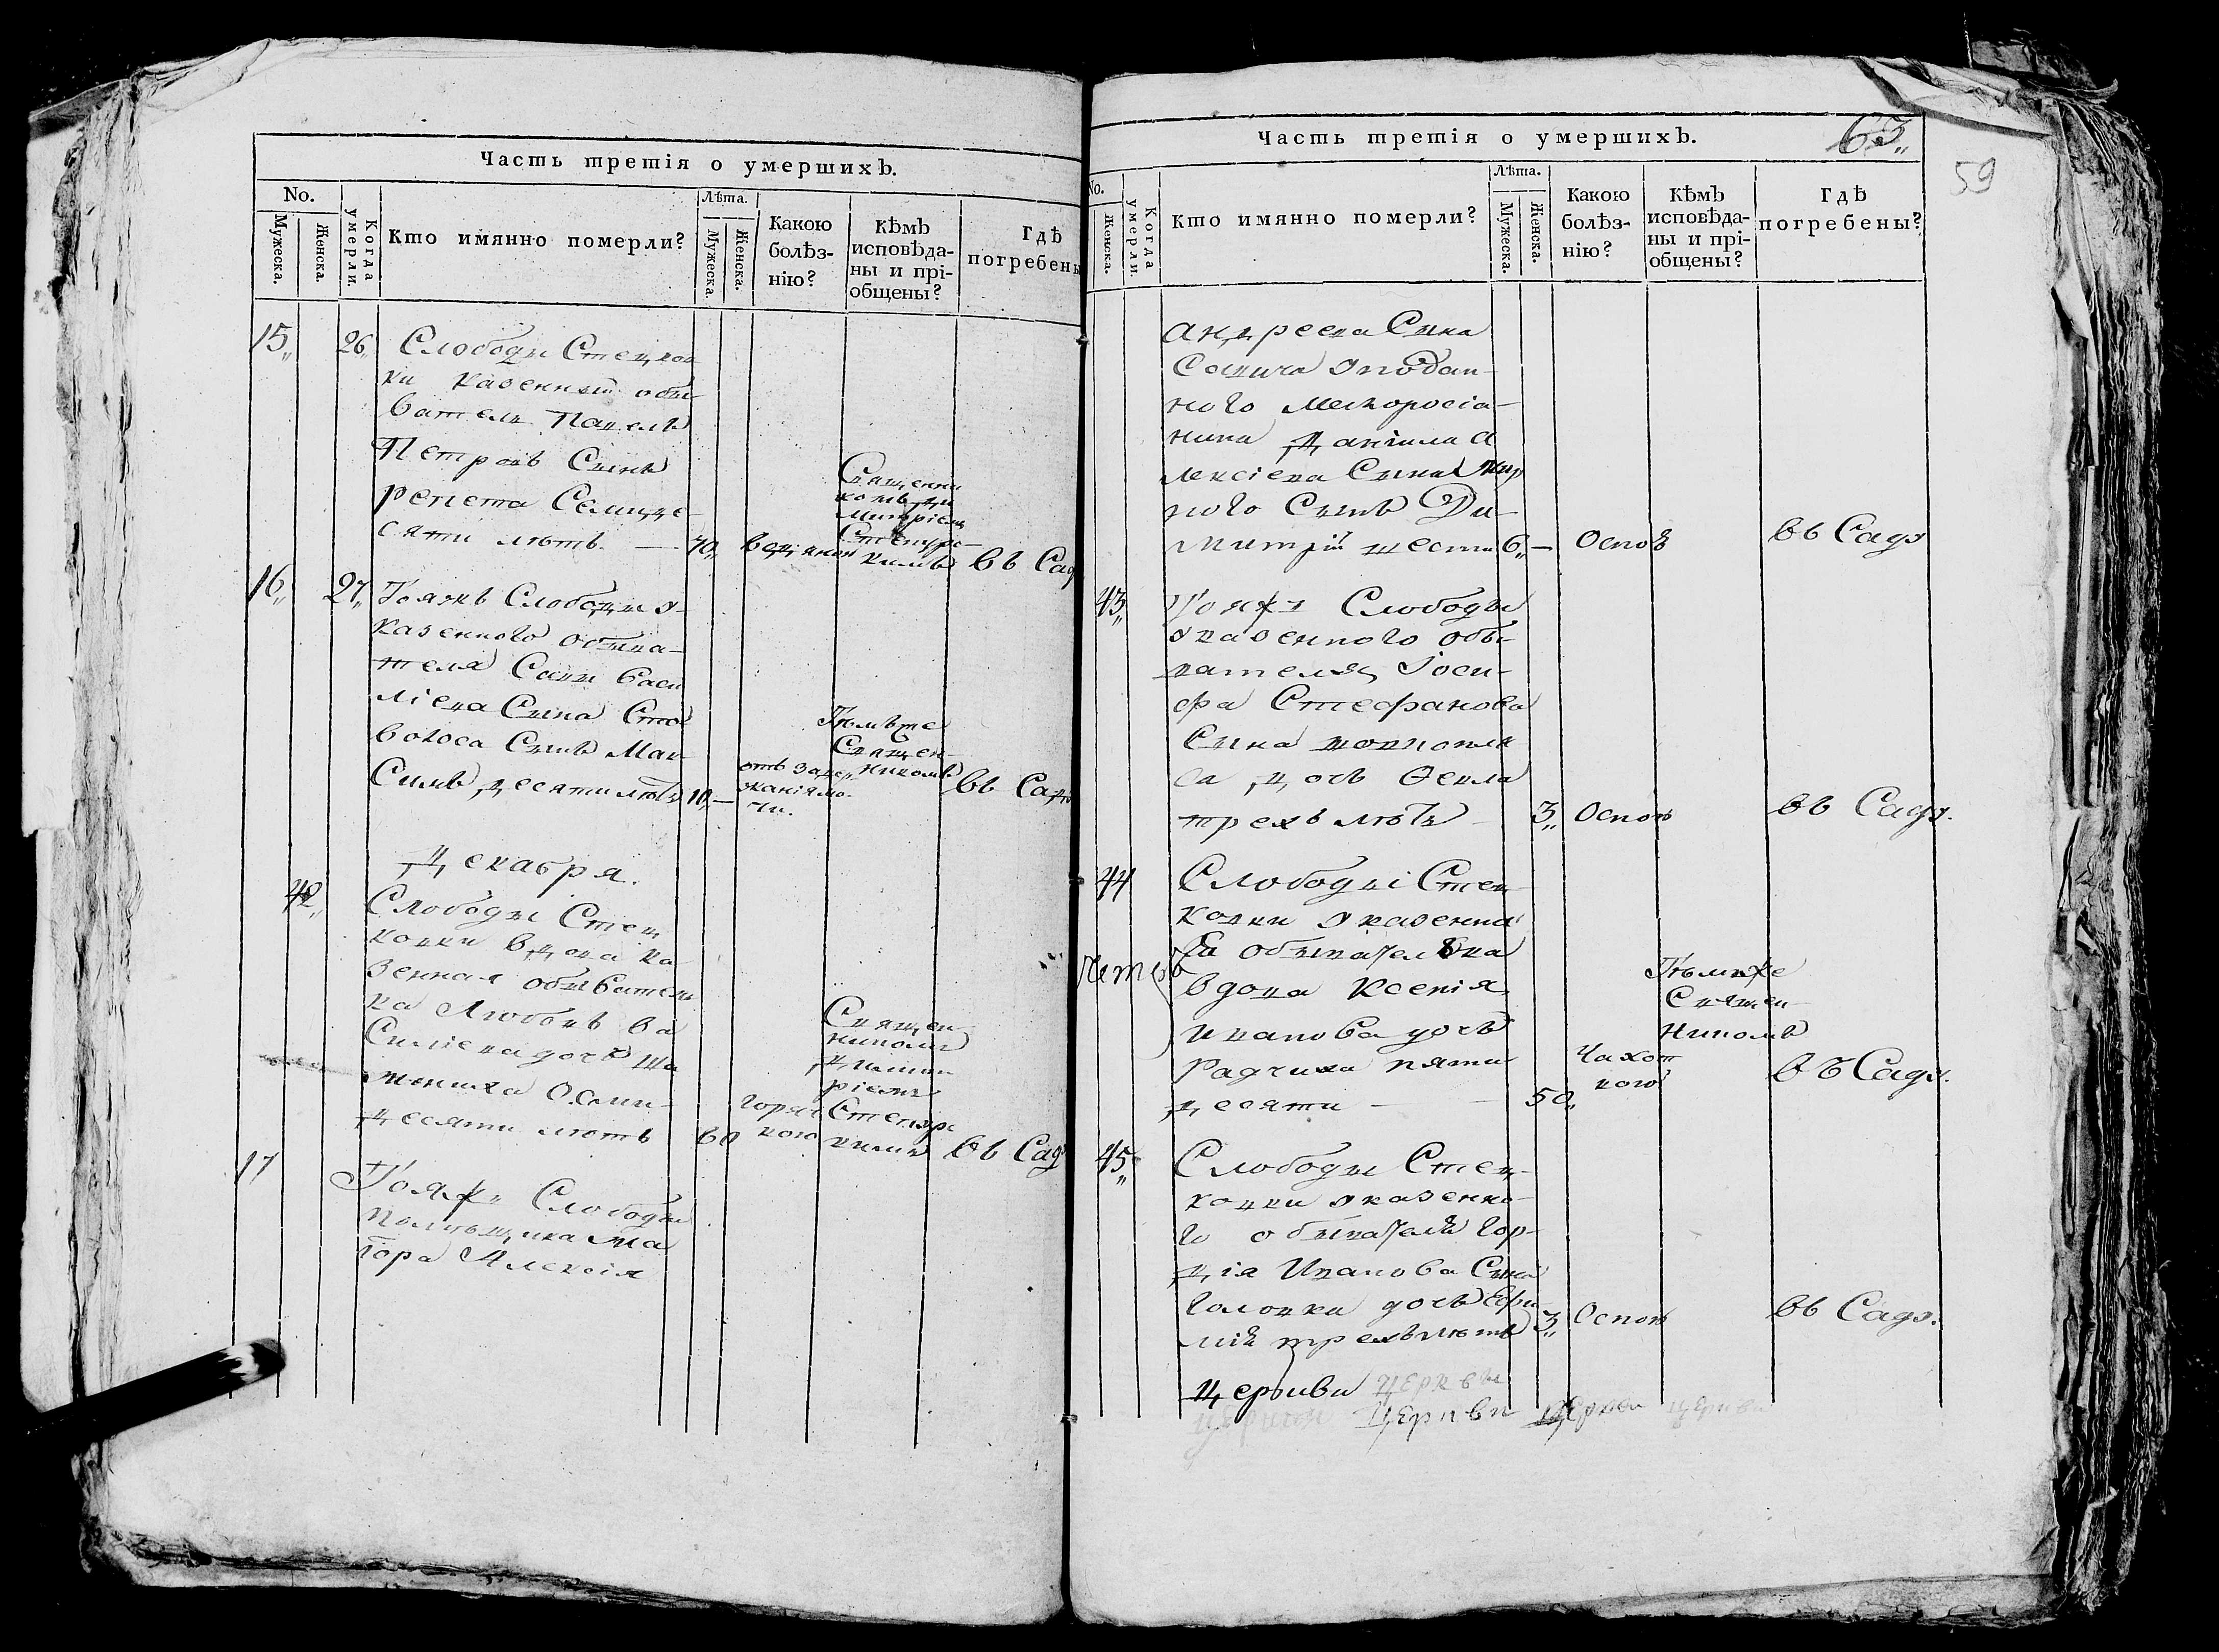 Часть третія о умершихъ.
No.
Мужеска.
Женска.
Когда умерли.
Кто имянно померли?
Лѣта.
Мужеска.
Женска.
Какою
болѣз-
нію?
кѣмъ
исповѣда-
ны и прі-
общены?
Гдѣ
погребены
15„ 26„ Слободы Стецков
ки казенный обы-
ватель Павелъ
Петровъ Сынъ
репета Семиде-
сяти лѣтъ — 70„
Священни
комъ Ди
митріемъ
въ Сад
16„ 27„ Тояжъ Слободы
казенного обыва-
теля Савы Васи
ліева Сына Сто
Сынъ Мак
Симъ десяти лѣтъ 10„ —
отъ задер
жанія мо-
чи.
Тѣмъже
Священ-
никомъ
въ Сад
Декабря.
42„ Слободы Стец
ковки вдова ка
зенная обывател
ка Любовь Ва
силіева дочь
Осми-
десяти лѣтъ 80
горяч
кою
Священ
никомъ
Дими
ріемъ
въ Сад
17 Тояжъ Слободы
помѣщика Ма
іора Алексія
Часть третія о умершихъ.
63„
59
No.
Женска.
Когда умерли.
Кто имянно померли?
Лѣта.
Мужеска.
Женска.
Какою
болѣз-
нію?
Кѣмъ
исповѣда-
ны и прі-
общены?
Гдѣ
погребены?
андреева Сына
подан-
ного
нина Даніила а
лексіева Сына
Сынъ Ди-
митрій шести 6„ — Оспою въ Саду
43„ Тояжъ Слободы
казенного обы-
вателя Іоси-
фа Стефанова
Сына
са дочь Ѳекла
трехъ лѣтъ — 3„ Оспою въ Саду.
44 Слободы Стец-
ковки казенна
я обывателка
вдова Ксенія
иванова дочь
Радчиха пяти
десяти — 50„
Чахот
кою
Тѣмъже
Священ-
никомъ
въ Саду.
45„ Слободы Стец-
ковки казенно-
го обывателя Гор-
дія Иванова Сына
Головка дочь Ефи
мія трехъ лѣтъ 3„ Оспою въ Саду.
Церькви церкви
церкви церкви церкви